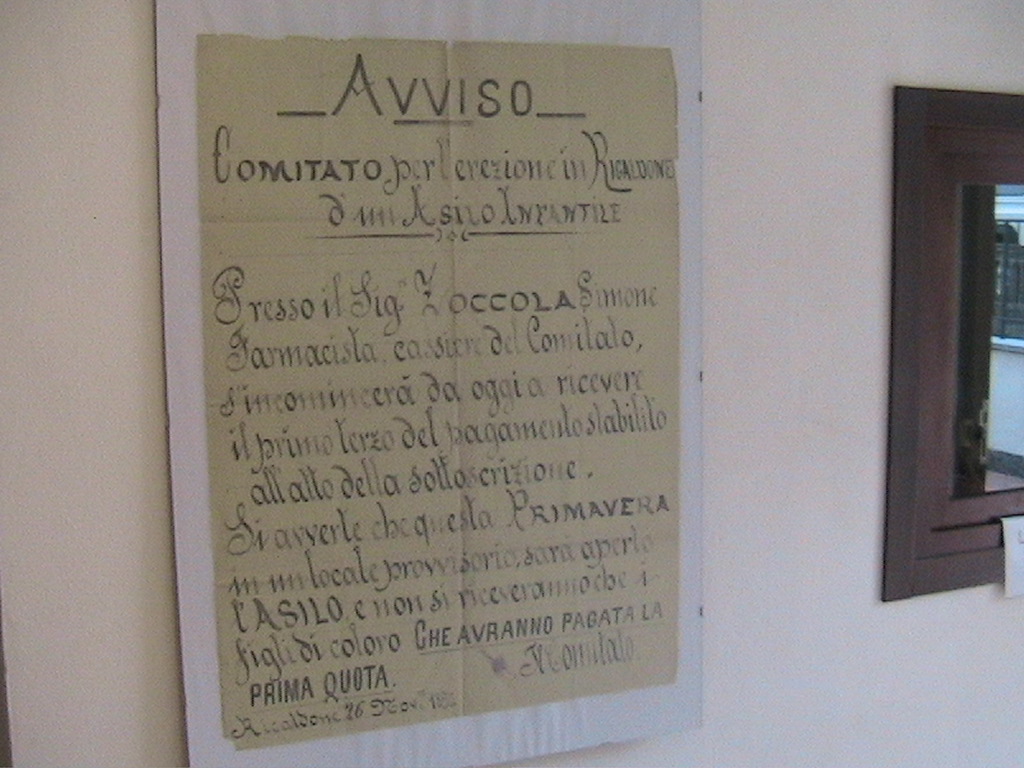 AVVISO
COMITATO per l'erezione in RICALDONE
d'un ASILO INFANTILE
Presso il Sigr ZOCCOLA Simone
Farmacista, cassiere del Comitato,
s'incomincerà da oggi a ricevere
il primo terzo del pagamento stabilito
all'atto della sottoscrizione.
Si avverte che questa PRIMAVERA
in un locale provvisorio, sarà aperto
l'ASILO, e non si riceveranno che i
figli di coloro CHE AVRANNO PAGATA LA
PRIMA QUOTA. Il Comitato.
Ricaldone 26 Nov.